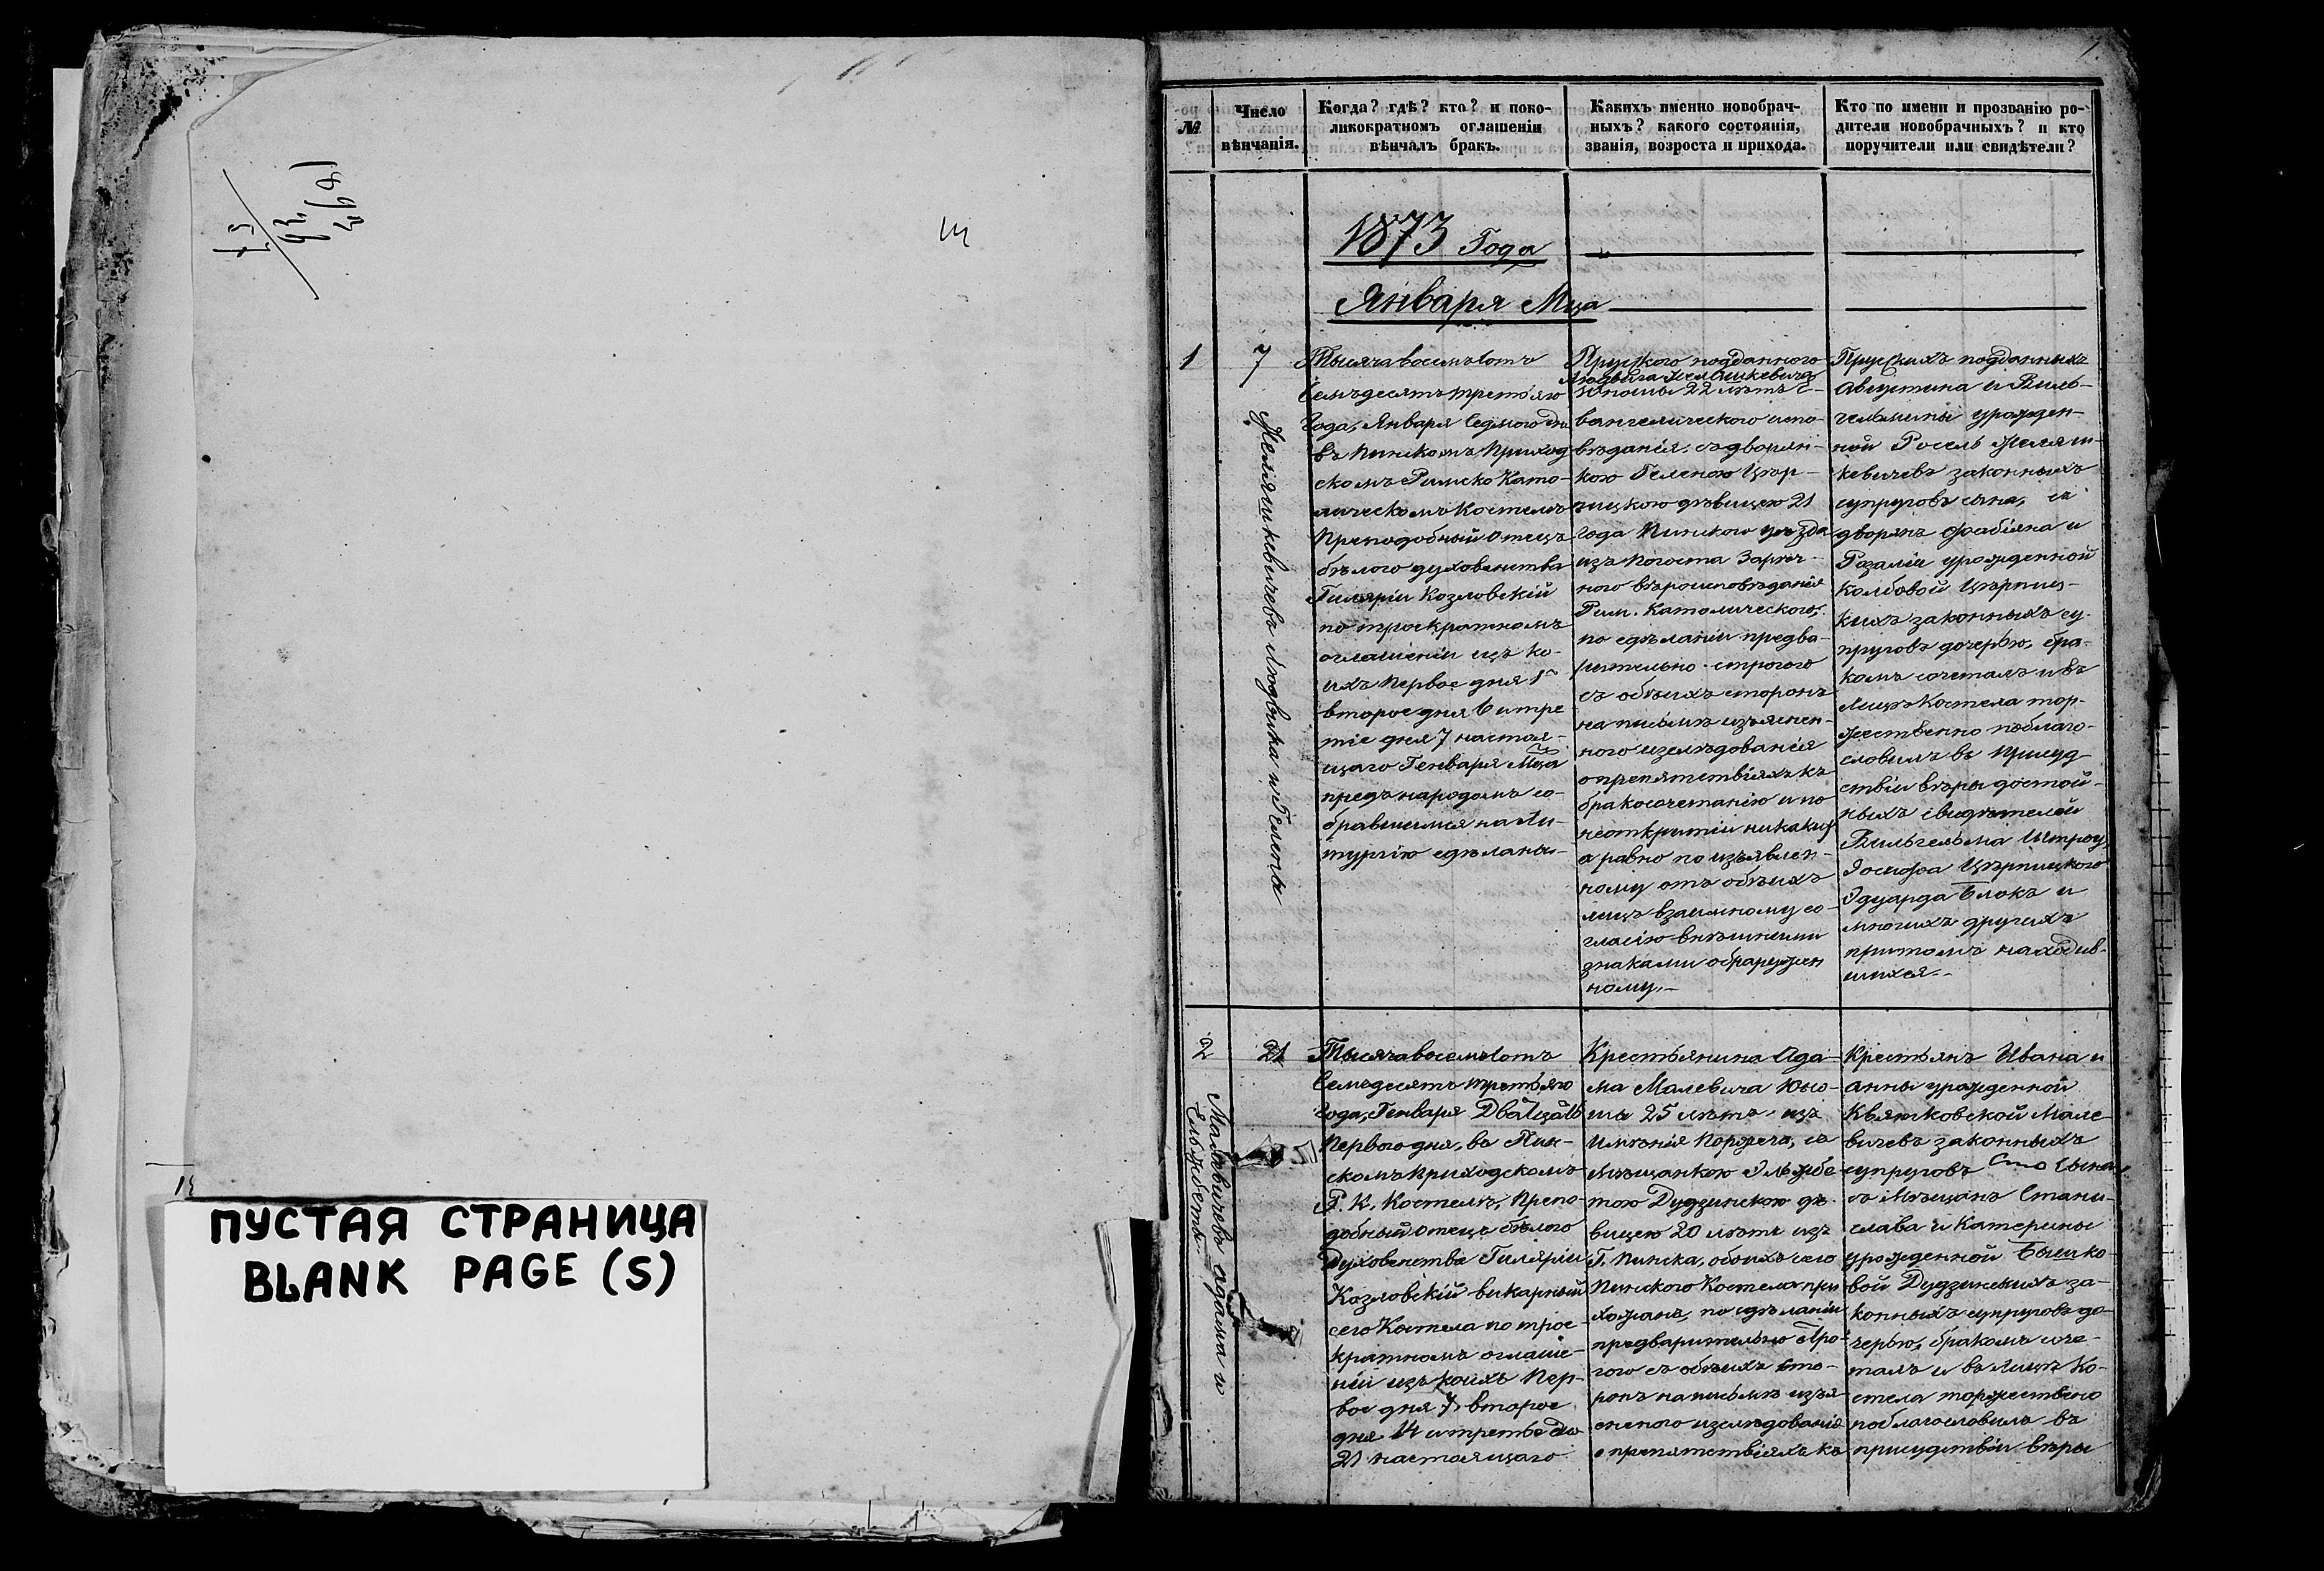 ПУСТАЯ СТРАНИЦА
BLANK PAGE (S)
1.
№
Число
вѣнчанія.
Когда? гдѣ? кто? и поко-
ликократномъ оглашеніи
вѣнчалъ бракъ.
Какихъ именно новобрач-
ныхъ? какого состоянія,
званія, возроста и прихода.
Кто по имени и прозванію ро-
дители новобрачныхъ? и кто
поручители или свидѣтели?
1873 Года
Января Мца
1
7
Людвика и Гелены
Тысяча восемъ сотъ
семъдесятъ третьяго
года, Января седмого дня
въ Пинскомъ Приход
скомъ Римско Като-
лическомъ Костелѣ
Преподобный Отецъ
бѣлого духовенства
Гиляріи Козловскій
по троекратномъ
оглашеніи изъ ко-
ихъ первое дня 1
второе дня 6 и тре
тіе дня 7 настоя-
щаго Генваря Мца
предъ народомъ со-
бравшимся на Ли-
тургію сдѣланы-
Прусского подданного
Людвига
юношы 22 лѣтъ е-
вангелического испо-
вѣданія, съ дворян-
кою Геленою Цѣр-
пицкою дѣвицею 21
года Пинского уѣзда
изъ Погоста Зарѣч-
ного вѣроисповѣданія
Рим. Католического,
по сдѣланіи предва-
рительно строгого
съ обѣихъ сторонъ
на письмѣ изъяснен-
ного изслѣдованія
о препятствіяхъ къ
бракосочетанію и по
неоткрытіи никакихъ
а равно по изъявлен-
ному отъ обѣихъ
лицъ взаимному со-
гласію внѣшними
знаками обнаружен
ному.-
Прусскихъ подданныхъ
Августина и Виль-
гельмины урожден-
ной Росель Желяш-
кевичевъ законныхъ
супруговъ сына, съ
дворянъ Фабіяна и
Розаліи урожденной
Колбовой Цѣрпиц-
кихъ законныхъ су-
пруговъ дочерью, бра-
комъ сочеталъ и въ
Лицѣ Костела тор-
жественно поблаго-
словилъ въ присуд-
ствіи вѣры достой-
ныхъ свидѣтелей
Вильгельма
Іосифа Цѣрпицкого
Эдуарда Блокъ и
многихъ другихъ
притомъ находив-
шихся.-
2
21
Малевичовъ Адама и
Ельжбеты.
Тысяча восемъ сотъ
семъдесятъ третьяго
года, Генваря двадцать
Первого дня, въ Пин-
скомъ Приходскомъ
Р. К. Костелѣ, Препо-
добный Отецъ бѣлого
Духовенства Гиляріи
Козловскій викарный
сего Костела по трое-
кратномъ оглаше-
ніи изъ коихъ Пер-
вое дня 7 второе
дня 14 и третье дня
21 настоящаго
Крестьянина Ада-
ма Малевича Юно-
шы 25 лѣтъ изъ
Имѣнія Поржеча, съ
Мѣщанкою Эльжбе-
тою Дудзинскою дѣ-
вицею 20 лѣтъ изъ
Г. Пинска, обоихъ сего
Пинского Костела при
хожанъ, по сдѣланіи
предварительно стро-
гого съ обѣихъ сто-
ронъ на письмѣ изъя
снного изслѣдованія
о препятствіяхъ къ
Крестьянъ Ивана и
Анны урожденной
Квятковской Мале-
вичевъ законныхъ
супруговъ сына,
съ Мѣщанъ Стани-
слава и Катерины
урожденной Бышко-
вой Дудзинскихъ за-
конныхъ супруговъ до-
черью, бракомъ соче-
талъ и въ Лицѣ Ко-
стела торжествено
поблагословилъ въ
присудствіи вѣры